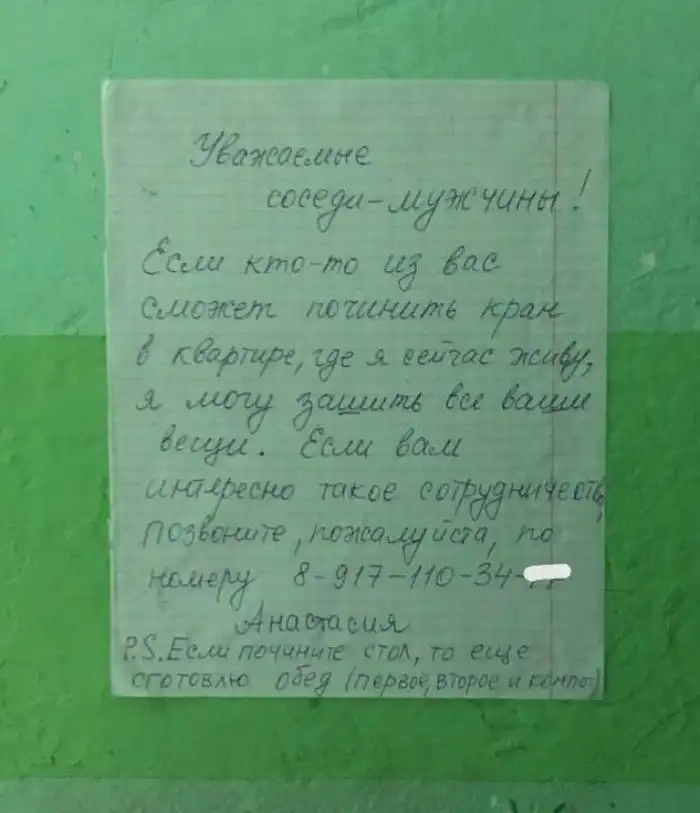 Уважаемые
соседи-мужчины!
Если кто-то из вас
сможет починить кран
в квартире, где я сейчас живу,
я могу зашить все ваши
вещи. Если вам
интересно такое сотрудничество,
позвоните, пожалуйста, по
номеру 8-917-110-34-
Анастасия
P.S. Если почините стол, то еще
сготовлю обед (первое, второе и компот)